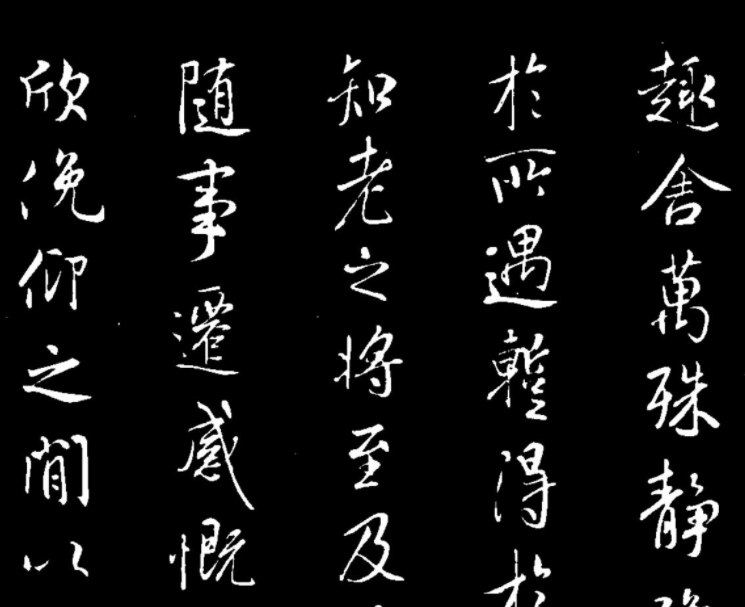 趣舍萬殊靜
於所遇蹔得於
知老之將至及
随事遷感慨
欣俛仰之閒以